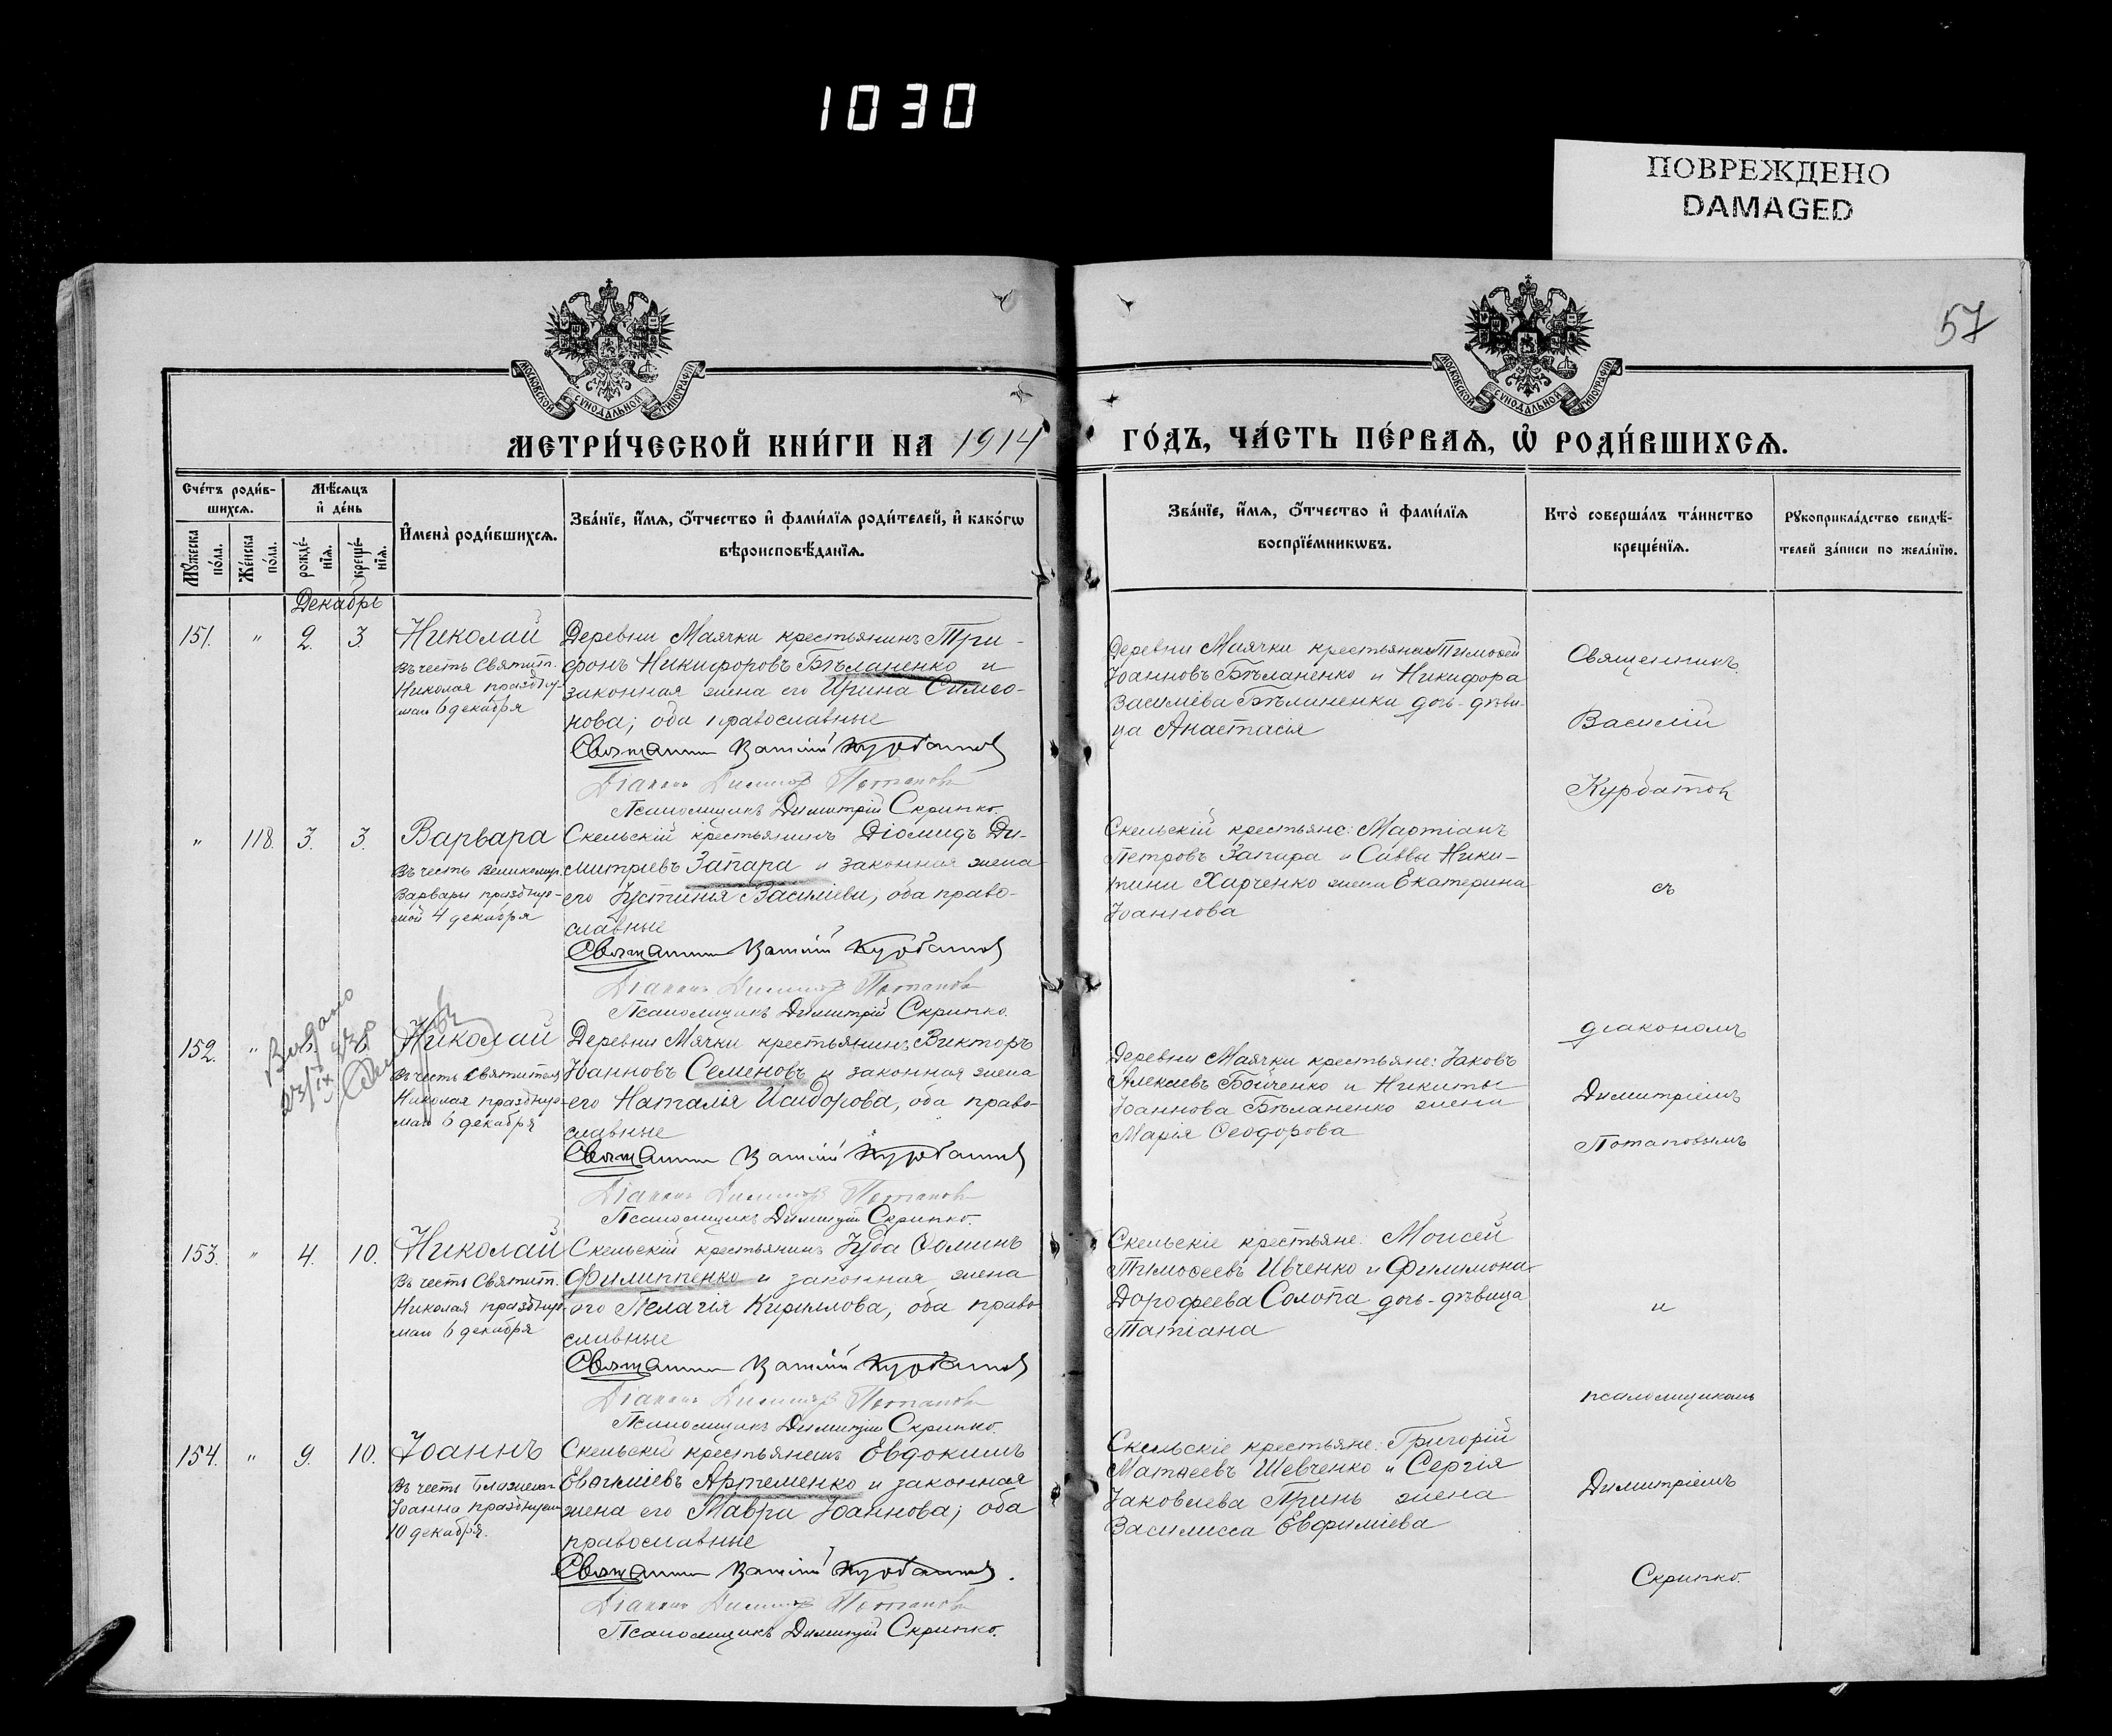 1030
ПОВРЕЖДЕНО
DAMAGED
57
МОСКОВСКОЙ СѴНОДАЛЬНОЙ ТИПОГРАФІИ
МОСКОВСКОЙ СѴНОДАЛЬНОЙ ТИПОГРАФІИ
МЕТРИ́ЧЕСКОЙ КНИ́ГИ НА 1914
ГО́ДЪ, ЧА́СТЬ ПЕ́РВАѦ, Ѡ҆ РОДИ́ВШИХСѦ.
Сче́тъ роди́в-
шихсѧ.
Мꙋ́жеска
по́ла.
Же́нска
по́ла.
Мѣ́сѧцъ
и҆ де́нь
рожде́-
нїѧ.
креще́-
нїѧ.
И҆мена̀ роди́вшихсѧ.
Зва́нїе, и҆́мѧ, ѻ҆́тчество и҆ фами́лїѧ роди́телей, и҆ како́гѡ
вѣроисповѣ́данїѧ.
Зва́нїе, и҆́мѧ, ѻ҆́тчество и҆ фами́лїѧ
воспрїе́мникѡвъ.
Кто̀ соверша́лъ та́инство
креще́нїѧ.
Рꙋкоприкла́дство свидѣ́-
телей за́писи по жела́нїю.
Декабрь
151. " 2. 3. Николай
Въ честь Святит.
Николая праздну-
маго 6 декабря
Деревни Маячки крестьянинъ Три-
фонъ Никифоровъ Бѣланенко и
законная жена его Ирина Симео-
нова; оба православные
Священникъ Василій Курбатовъ
Діаконъ Димитрій Потаповъ
Псаломщикъ Димитрій Скрипко.
Деревни Маячки крестьяне: Тимофей
Іоанновъ Бѣланенко и Никифора
Василіева Бѣланенка дочь-дѣви-
ца Анастасія
Священникъ
Василій
Курбатовъ
" 118. 3. 3. Варвара
Въ честь Великомуч.
Варвары праздну-
мой 4 декабря
Скельскій крестьянинъ Діомидъ Ди-
митріевъ Запара и законная жена
его Іустинія Василіева, оба право-
славные
Священникъ Василій Курбатовъ
Діаконъ Димитрій Потаповъ
Псаломщикъ Димитрій Скрипко.
Скельскій крестьяне: Мартіанъ
Петровъ Запара и Саввы Ники-
тина Харченко жена Екатерина
Іоаннова
съ
152. " Николай
Въ честь Святителя
Николая праздну-
маго 6 декабря
Деревни Мячки крестьянинъ Викторъ
Іоанновъ Семеновъ и законная жена
его Наталья Исидорова, оба право-
славные
Священникъ Василій Курбатовъ
Діаконъ Димитрій Потаповъ
Псаломщикъ Димитрій Скрипко.
Деревни Маячки крестьяне: Іаковъ
Алексіевъ Бойченко и Никиты
Іоаннова Бѣланенко жена
Марія Ѳеодорова
діакономъ
Димитріемъ
Потаповымъ
153. " 4. 10. Николай
Въ честь Святит.
Николая праздну-
маго 6 декабря
Скельскій крестьянинъ Іуда Ѳоминъ
Филиппенко и законная жена
его Пелагія Кириллова, оба право-
славные
Священникъ Василій Курбатовъ
Діаконъ Димитрій Потаповъ
Псаломщикъ Димитрій Скрипко.
Скельскіе крестьяне: Моисей
Тимоѳеевъ Ивченко и Филимона
Дорофеева Солопа дочь-дѣвица
Татіана
и
псаломщикомъ
154. " 9. 10. Іоаннъ
Въ честь Блаженн.
Іоанна празднуем.
10 декабря.
Скельскій крестьянинъ Евдокимъ
Евѳиміевъ Артеменко и законная
жена его Мавра Іоаннова; оба
православные
Священникъ Василій Курбатовъ.
Діаконъ Димитрій Потаповъ
Псаломщикъ Димитрій Скрипко.
Скельскіе крестьяне: Григорій
Матѳеевъ Шевченко и Сергія
Іаковлева Принь жена
Василисса Евфиміева
Димитріемъ
Скрипко.